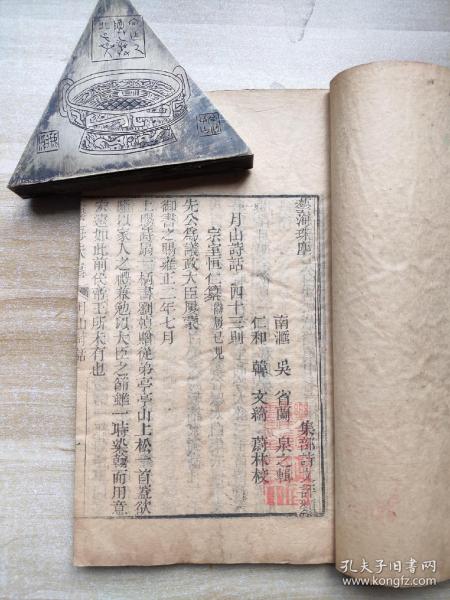 藝海珠塵 集部詩文評類
南滙 吳省蘭 泉之輯
仁和 韓文綺 蔚林校
月山詩話 四十三則
宗室恒仁纂 爵履已見
先公爲議政大臣屢蒙
御書之賜雍正二年七月
上賜詩扇一柄書劉楨贈從弟亭亭山上松一首蓋欲
以家人之禮眷勉以大臣之節雖一時翰墨而用意
深遠如此前代帝王所未有也
月山詩話
孔夫子旧书网
www.kongfz.com